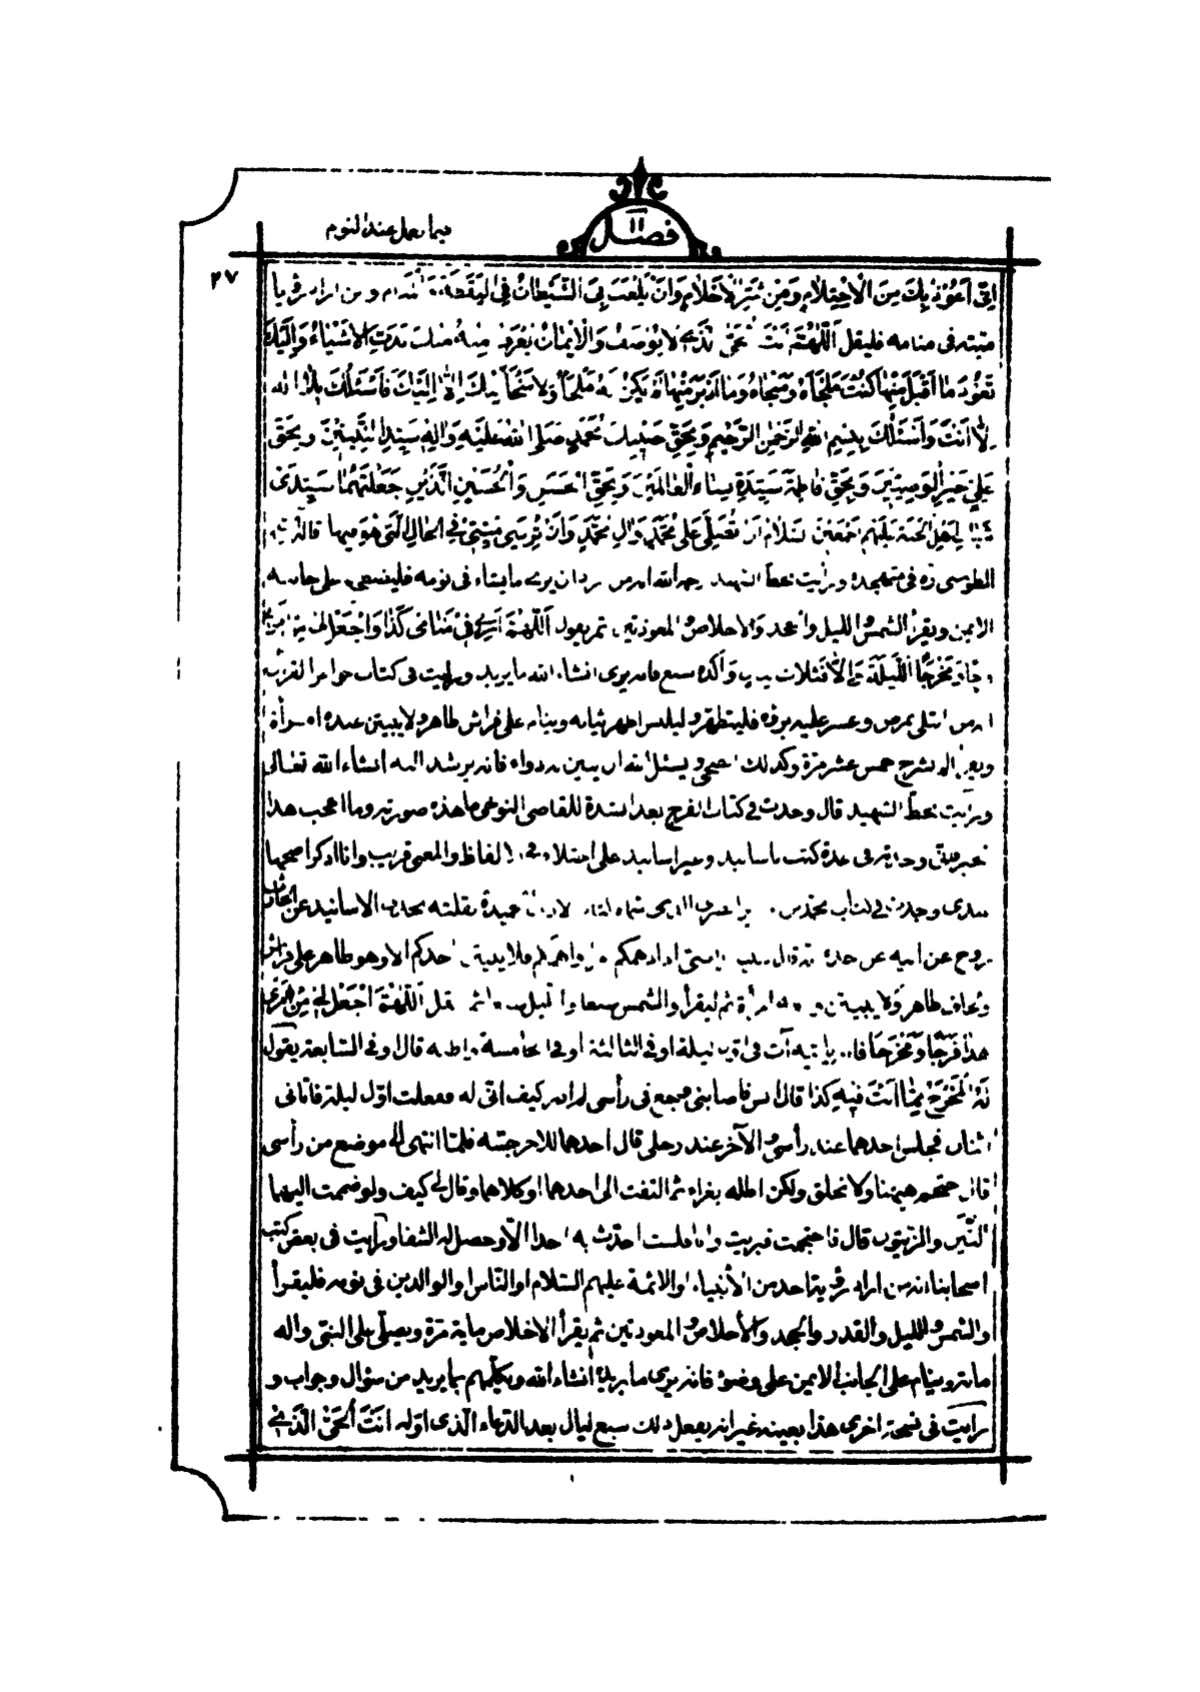 فصل ١١
فيما يعمل عند النوم
٢٧
اني اعوذ بك من الاحتلام ومن شر الاحلام وان يلعب بي الشيطان في اليقظة ومن اراد رؤيا
ميته في منامه فليقل اللهم انت الحي الذي لا يوصف والايمان يعرف منه منك بدت الاشياء واليك
تعود ما اقبل منها كنت ملجأه ومنجاه وما ادبر منها لم يكن له ملجأ ولا منجا منك الا اليك فاسئلك بلا اله
الا انت واسئلك ببسم الله الرحمن الرحيم وبحق حبيبك محمد صلى الله عليه واله سيد النبيين وبحق
علي خير الوصيين وبحق فاطمة سيدة نساء العالمين وبحق الحسن والحسين الذين جعلتهما سيدي
شباب اهل الجنة عليهم اجمعين السلام ان تصلي على محمد وال محمد وان تريني ميتي في الحال التي هو فيها قاله
الطوسي ره في متهجده ورايت بخط الشهيد رحمه الله ان من اراد ان يرى ما يشاء في نومه فليضطجع على جانبه
الايمن ويقرأ الشمس والليل والجحد والاخلاص والمعوذتين ثم يقول اللهم ارني في منامي كذا واجعل لي من امري
فرجا ومخرجا الليلة والا ف ثلاث واكده سبع فانه يرى انشاء الله ما يريد ورايت في كتاب خواص القران
ان من ابتلى بمرض وعسر عليه برؤه فليتطهر وليلبس اطهر ثيابه وينام على فراش طاهر ولا يبيتن عنده امرأة
ويقرأ الم نشرح خمس عشر مرة وكذلك الضحى ويسئل الله ان يبين له دواه فانه يرشد اليه انشاء الله تعالى
ورايت بخط الشهيد قال وجدت في كتاب الفرج بعد الشدة للقاضي التنوخي ما هذه صورته وما اعجب هذا
الخبر فاني وجدته في عدة كتب باسانيد وغير اسانيد على اختلاف في الالفاظ والمعنى قريب وانا اذكر اصحها
عندي وجدت في كتاب محمد بن جرير الطبري الذي سماه الاداب الحميدة نقلته بحذف الاسانيد عن
روح عن ابيه عن جده انه قال لبنيه يا بني اذا دهمكم امر واهمكم فلا يبيتن احدكم الا وهو طاهر على فراش
ولحاف طاهر ولا يبيتن ومعه امرأة ثم ليقرأ والشمس سبعا والليل سبعا ثم ليقل اللهم اجعل لي من امري
هذا فرجا ومخرجا فانه يأتيه آت في اول ليلة او في الثالثة او في الخامسة واظنه قال او في السابعة يقول
له المخرج مما انت فيه كذا قال انس فاصابني وجع في رأسي لم ادر كيف اتى له ففعلت اول ليلة فاتاني
اثنان فجلس احدهما عند رأسي والآخر عند رجلي قال احدهما للاخر جسه فلما انتهى الى موضع من رأسي
قال احتجم هيهنا ولا تحلق ولكن اطله بغراء ثم التفت الى احدهما او كلاهما وقال لي كيف ولو ضممت اليهما
التين والزيتون قال فاحتجمت فبريت وانا فلست احدث به احدا الا وحصل له الشفا ورايت في بعض كتب
اصحابنا انه من اراد رؤية احد من الأنبياء او الائمة عليهم السلام او الناس او الوالدين في نومه فليقرأ
والشمس والليل والقدر والجحد والاخلاص والمعوذتين ثم يقرأ الاخلاص ماية مرة ويصلي على النبي واله
ماية مرة وينام على الجانب الايمن على وضوء فانه يرى ما يريد انشاء الله ويكلمهم بما يريد من سؤال وجواب و
رايت في نسخة اخرى هذا بعينه غير انه يفعل ذلك سبع ليال بعد الدعاء الذي اوله انت الحي الذي